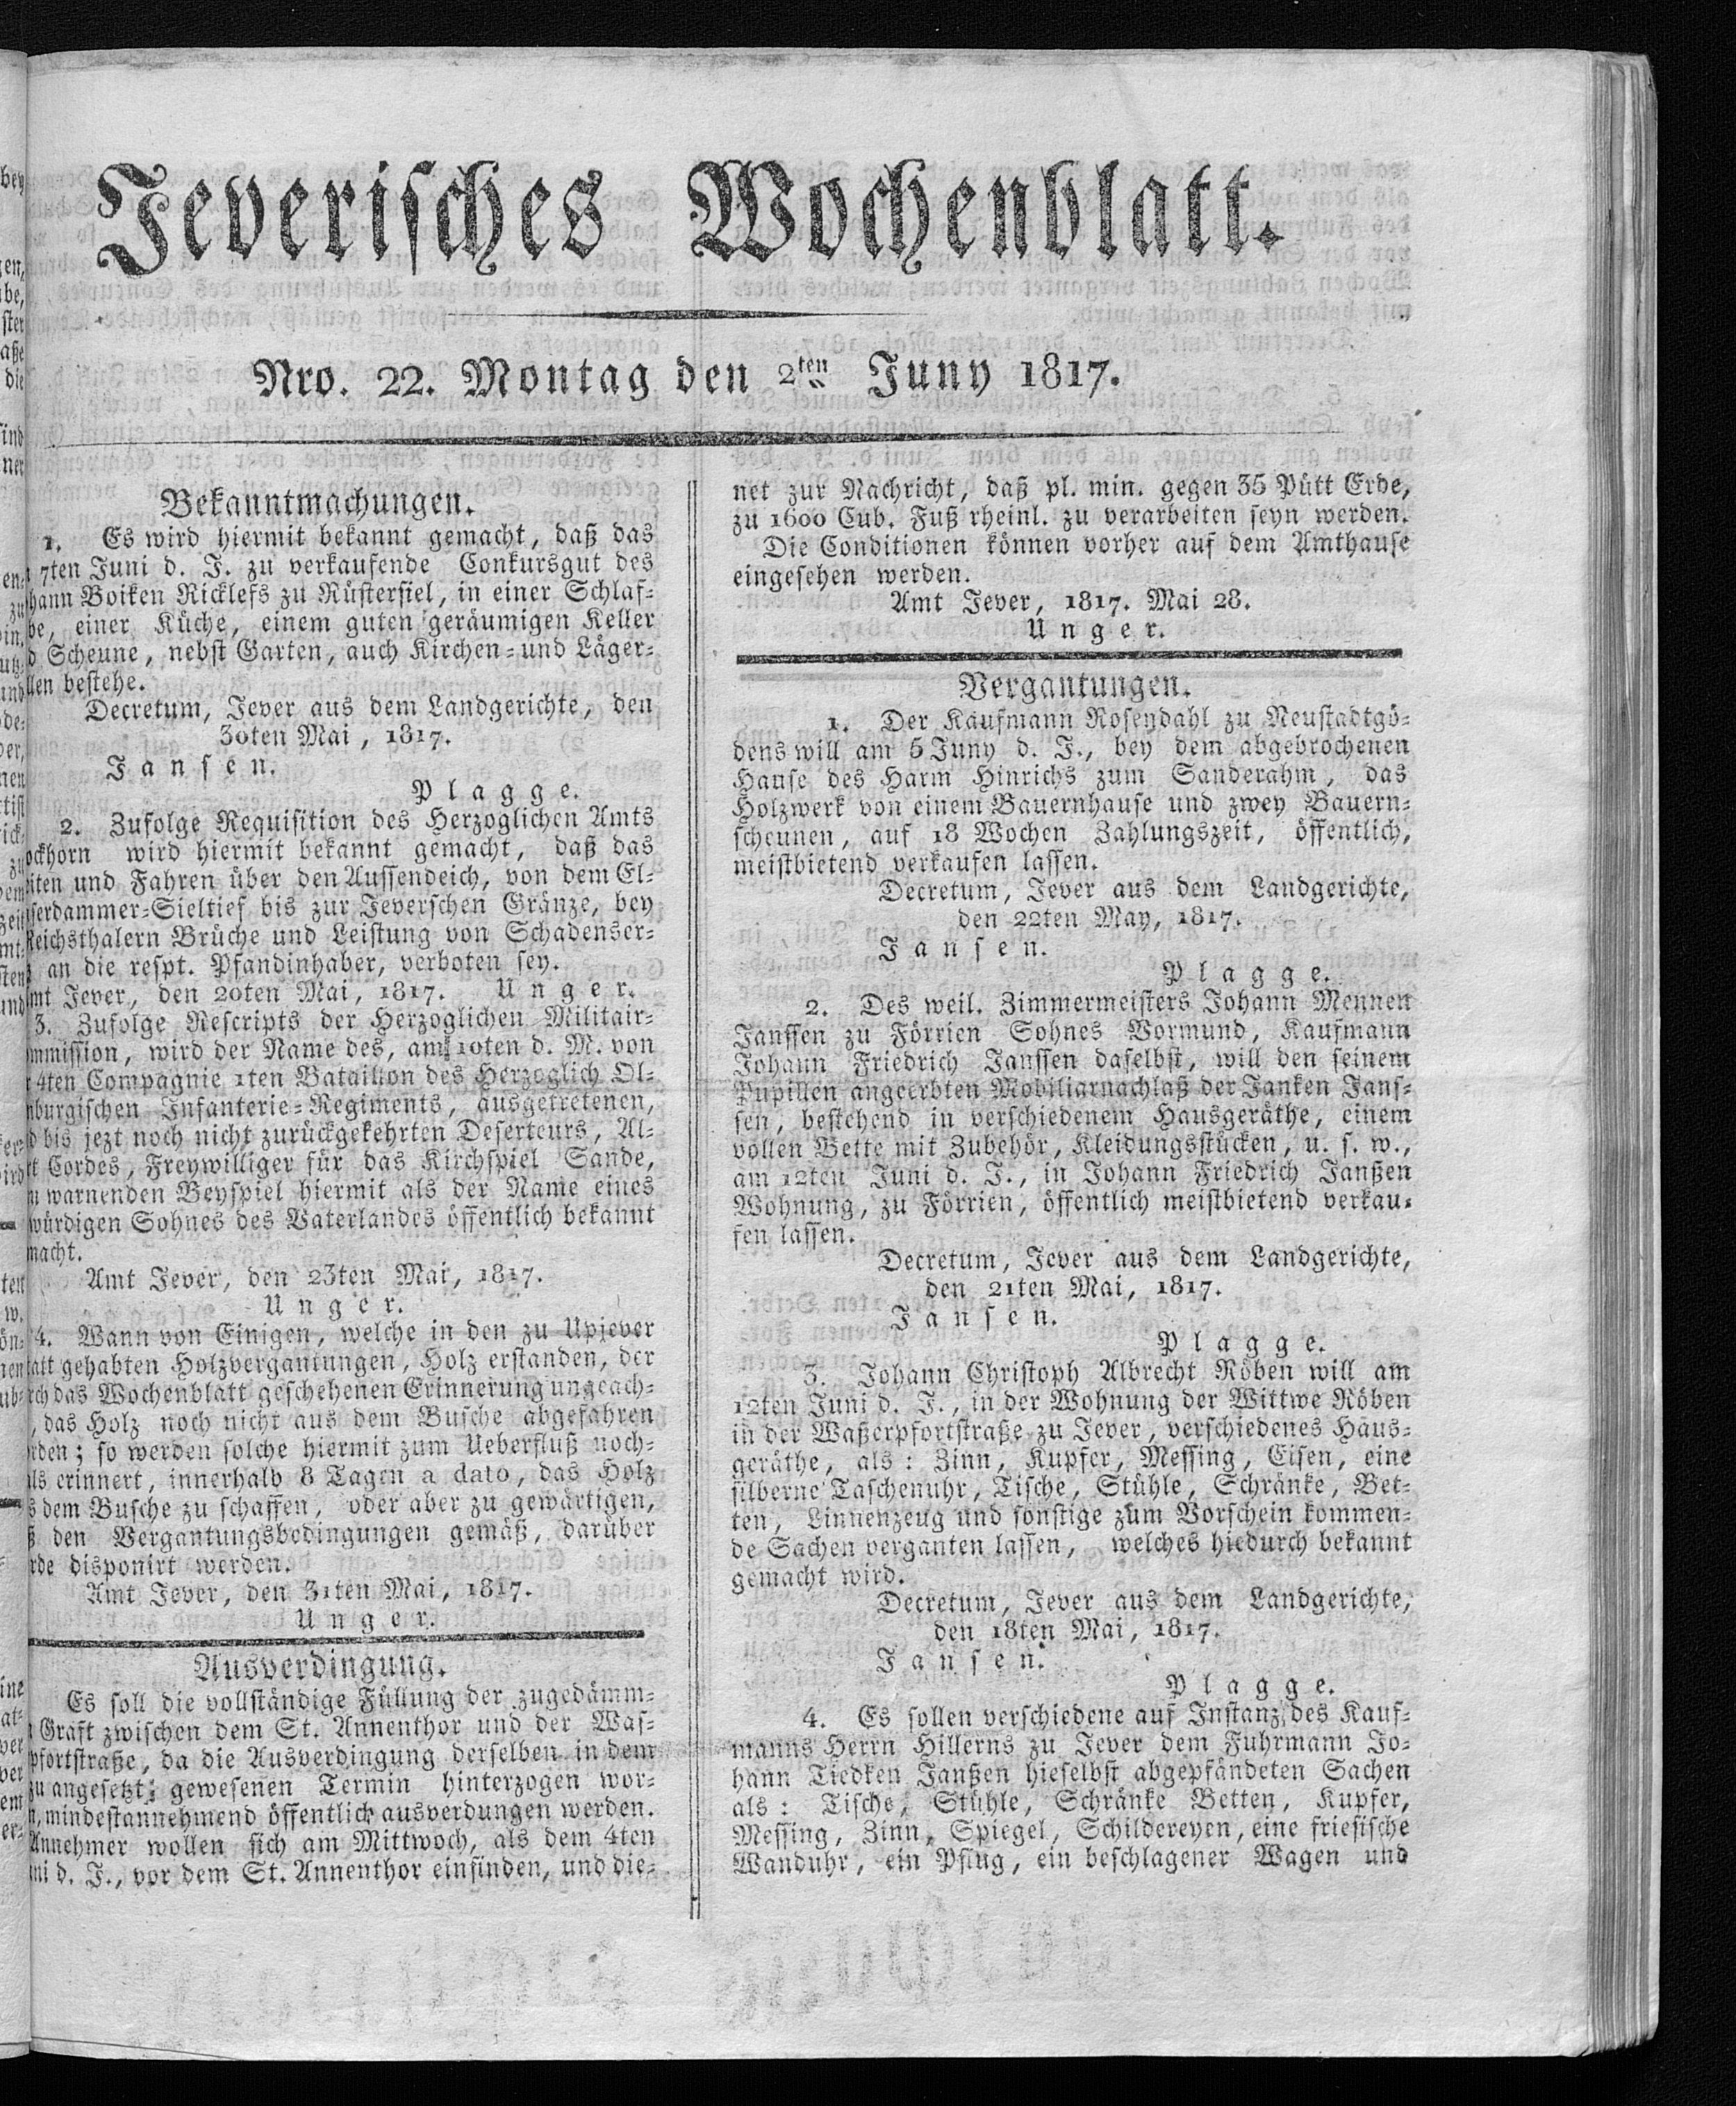 Jeverisches Wochenblatt.
Nro. 22. Montag den 2ten Juny 1817.
Bekanntmachungen.
1. Es wird hiermit bekannt gemacht, daß das
7ten Juni d. J. zu verkaufende Conkursgut des
hann Boiken Ricklefs zu Rüstersiel, in einer Schlaf-
be, einer Küche, einem guten geräumigen Keller
d Scheune, nebst Garten, auch Kirchen- und Läger-
llen bestehe.
Decretum, Jever aus dem Landgerichte, den
30ten Mai, 1817.
Jansen.
Plagge.
2. Zufolge Requisition des Herzoglichen Amts
ockhorn wird hiermit bekannt gemacht, daß das
iten und Fahren über den Aussendeich, von dem El-
serdammer-Sieltief bis zur Jeverschen Gränze, bey
Reichsthalern Brüche und Leistung von Schadenser-
an die respt. Pfandinhaber, verboten sey.
mt Jever, den 20ten Mai, 1817. Unger.
3. Zufolge Rescripts der Herzoglichen Militair-
mmission, wird der Name des, am 10ten d. M. von
r 4ten Compagnie 1ten Bataillon des Herzoglich Ol-
nburgischen Infanterie-Regiments, ausgetretenen,
d bis jezt noch nicht zurückgekehrten Deserteurs, Al-
rt Cordes, Freywilliger für das Kirchspiel Sande,
m warnenden Beyspiel hiermit als der Name eines
würdigen Sohnes des Vaterlandes öffentlich bekannt
macht.
Amt Jever, den 23ten Mai, 1817.
Unger.
4. Wann von Einigen, welche in den zu Upjever
tatt gehabten Holzvergantungen, Holz erstanden, der
rch das Wochenblatt geschehenen Erinnerung ungeach-
, das Holz noch nicht aus dem Busche abgefahren
rden; so werden solche hiermit zum Ueberfluß noch-
ls erinnert, innerhalb 8 Tagen a dato, das Holz
s dem Busche zu schaffen, oder aber zu gewärtigen,
ß den Vergantungsbedingungen gemäß, darüber
rde disponirt werden.
Amt Jever, den 31ten Mai, 1817.
Unger.
Ausverdingung.
Es soll die vollständige Füllung der zugedämm-
Graft zwischen dem St. Annenthor und der Was-
pfortstraße, da die Ausverdingung derselben in dem
zu angesetzt gewesenen Termin hinterzogen wor-
n, mindestannehmend öffentlich ausverdungen werden.
Annehmer wollen sich am Mittwoch, als dem 4ten
ni d. J., vor dem St. Annenthor einfinden, und die-
net zur Nachricht, daß pl. min. gegen 35 Pütt Erde,
zu 1600 Cub. Fuß rheinl. zu verarbeiten seyn werden.
Die Conditionen können vorher auf dem Amthause
eingesehen werden.
Amt Jever, 1817. Mai 28.
Unger.
Vergantungen.
1. Der Kaufmann Rosendahl zu Neustadtgö-
dens will am 5 Juny d. J., bey dem abgebrochenen
Hause des Harm Hinrichs zum Sanderahm, das
Holzwerk von einem Bauernhause und zwey Bauern-
scheunen, auf 18 Wochen Zahlungszeit, öffentlich,
meistbietend verkaufen lassen.
Decretum, Jever aus dem Landgerichte,
den 22ten May, 1817.
Jansen.
Plagge.
2. Des weil. Zimmermeisters Johann Mennen
Janssen zu Förrien Sohnes Vormund, Kaufmann
Johann Friedrich Janssen daselbst, will den seinem
Pupillen angeerbten Mobiliarnachlaß der Janken Jans-
sen, bestehend in verschiedenem Hausgeräthe, einem
vollen Bette mit Zubehör, Kleidungsstücken, u. s. w.,
am 12ten Juni d. J., in Johann Friedrich Janßen
Wohnung, zu Förrien, öffentlich meistbietend verkau-
fen lassen.
Decretum, Jever aus dem Landgerichte,
den 21ten Mai, 1817.
Jansen.
Plagge.
3. Johann Christoph Albrecht Röben will am
12ten Juni d. J., in der Wohnung der Wittwe Röben
in der Waßerpfortstraße zu Jever, verschiedenes Haus-
geräthe, als: Zinn, Kupfer, Messing, Eisen, eine
silberne Taschenuhr, Tische, Stühle, Schränke, Bet-
ten, Linnenzeug und sonstige zum Vorschein kommen-
de Sachen verganten lassen, welches hiedurch bekannt
gemacht wird.
Decretum, Jever aus dem Landgerichte,
den 18ten Mai, 1817.
Jansen.
Plagge.
4. Es sollen verschiedene auf Instanz des Kauf-
manns Herrn Hillerns zu Jever dem Fuhrmann Jo-
hann Tiedken Janßen hieselbst abgepfändeten Sachen
als: Tische, Stühle, Schränke Betten, Kupfer,
Messing, Zinn, Spiegel, Schildereyen, eine friesische
Wanduhr, ein Pflug, ein beschlagener Wagen und